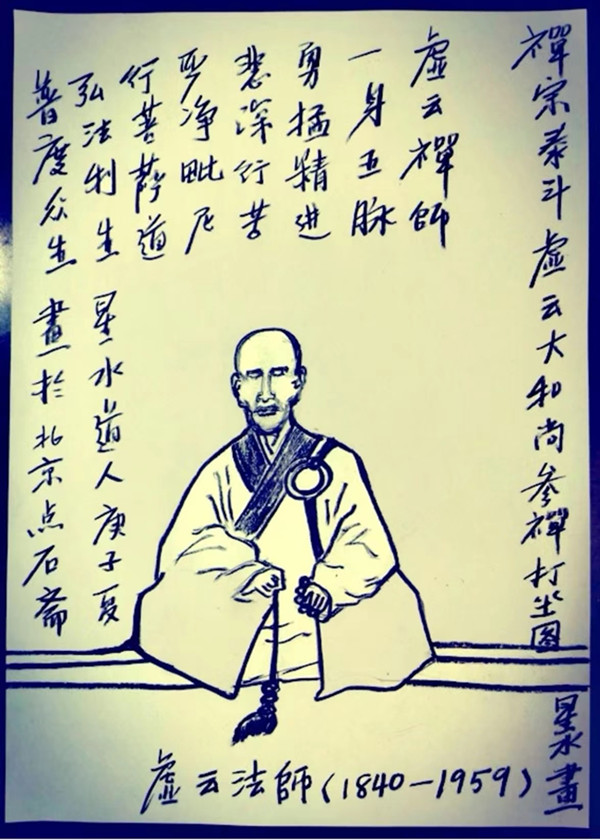 禪宗泰斗虛云大和尚参禪打坐图
星水畫
虛云禪師
一身五脉
勇猛精进
悲深行苦
聖净毗尼
行菩萨道
弘法利生
普度众生
星水道人庚子夏
畫於北京点石斋
虛云法師(1840-1959)